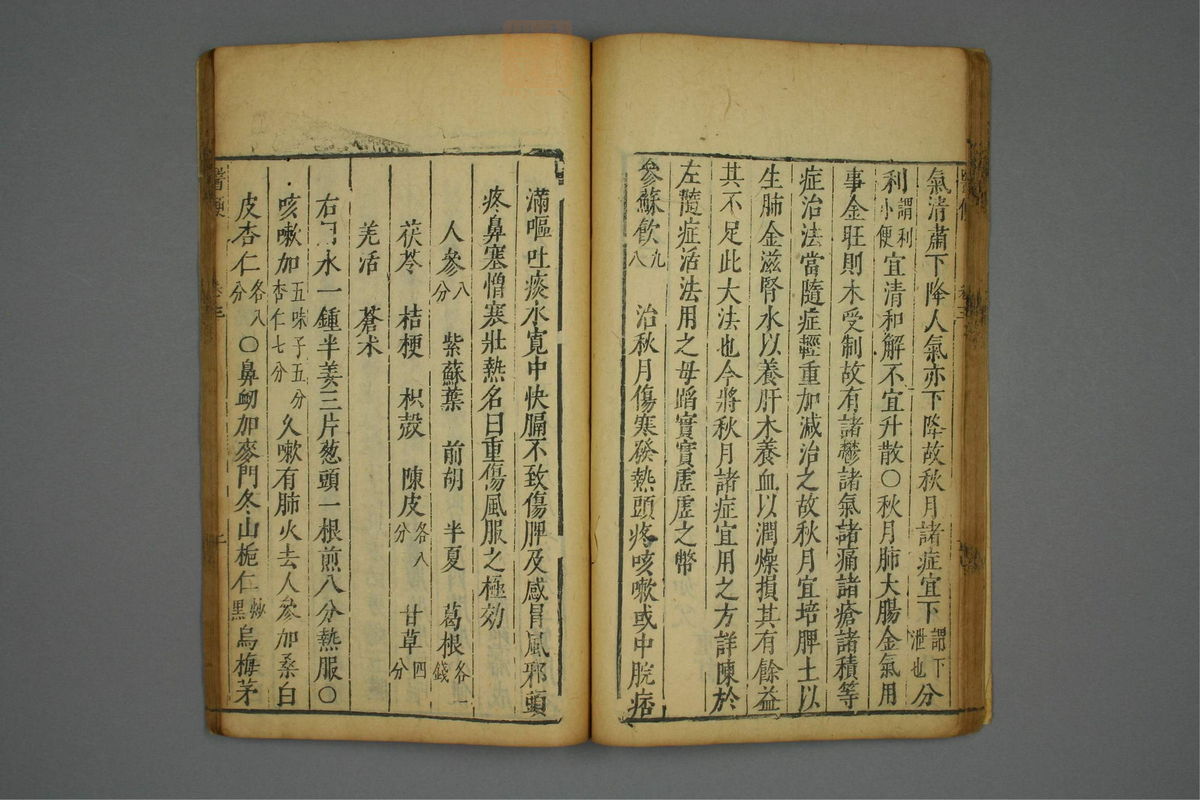 氣清肅下降人氣亦下降故秋月諸症宜下謂下泄也分
利謂利小便宜清和解不宜升散○秋月肺大腸金氣用
事金旺則木受制故有諸鬱諸氣諸痛諸瘡諸積等
症治法當隨症輕重加減治之故秋月宜培脾土以
生肺金滋腎水以養肝木養血以潤燥損其有餘益
其不足此大法也今將秋月諸症宜用之方詳陳於
左隨症活法用之毋蹈實實虛虛之幣
參蘇飲九八 治秋月傷寒發熱頭疼咳嗽或中脘痞
滿嘔吐痰水寬中快膈不致傷脾及感冒風邪頭
疼鼻塞憎寒壯熱名曰重傷風服之極効
人參八分 紫蘇葉 前胡 半夏 葛根各一錢
茯苓 桔梗 枳殼 陳皮各八分 甘草四分
羌活 蒼术
右用水一鍾半姜三片葱頭一根煎八分熱服○
咳嗽加五味子五分杏仁七分久嗽有肺火去人參加桑白
皮杏仁各八分○鼻衂加麥門冬山梔仁炒黑烏梅茅
醫便 卷三